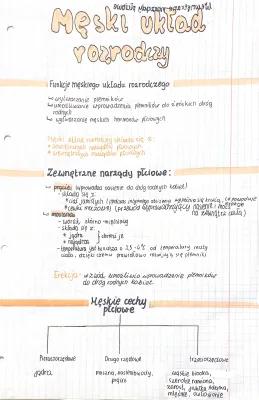 Męski układ
rozrodczy
Funkcje męskiego układu rozrodczego
↪ wytwarzanie plemników
↪ umożliwienie wprowadzenia plemników do żeńskich dróg
rodnych
↪ wytwarzanie męskich hormonów płciowych
Męski układ rozrodczy składa się z:
* zewnętrznych narządów płciowych
* wewnętrznych narządów płciowych
Zewnętrzne narządy płciowe:
- prącie (wprowadza nasienie do dróg rodnych kobiet)
- składa się z:
* ciał jamistych
* cewki moczowej
na zewnątrz ciała)
- moszna
- worek skórno-mięśniowy
- składa się z:
* jądra
* najądrza
- temperatura jest niższa o 2,5-4°C od temperatury reszty
ciała, dzięki czemu prawidłowo rozwijają się plemniki
Erekcja - wzwód, umożliwia wprowadzenie plemników
do dróg rodnych kobiet
Męskie cechy
płciowe
Pierwszorzędowe
Drugorzędowe
Trzeciorzędowe
jądra
moszna, nasieniowody,
prącie
wąskie biodra,
szerokie ramiona,
zarost, jabłko Adama,